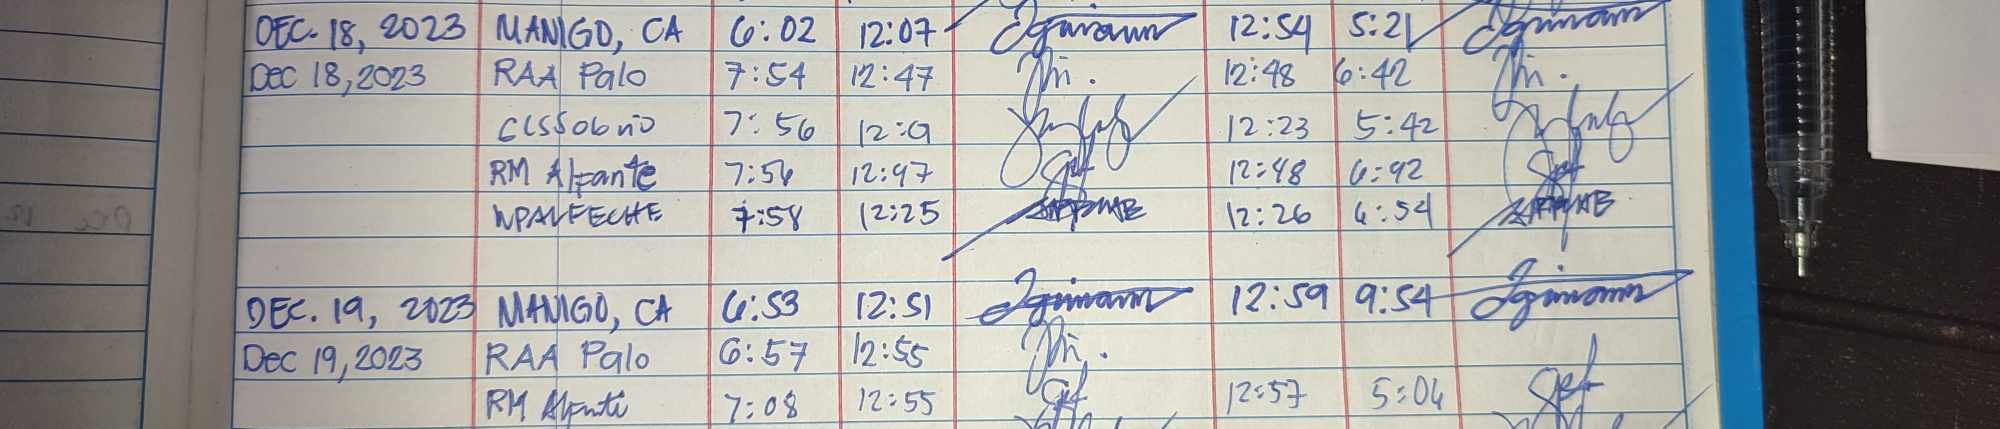 DEC. 18, 2023 MANIGO, CA 6:02 12:07 12:54 5:21
Dec 18, 2023 RAA Palo 7:54 12:47 12:48 6:42
CLSSobrio 7:56 12:19 12:23 5:42
RM Alfante 7:56 12:47 12:48 6:42
WPALFECHE 7:58 12:25 12:26 6:54
DEC. 19, 2023 MANIGO, CA 6:53 12:51 12:59 9:54
Dec 19, 2023 RAA Palo 6:57 12:55
RM Alfante 7:08 12:55 12:57 5:04